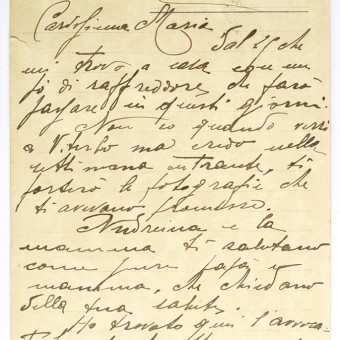 Carissima Maria
Dal 25 che
mi trovo a casa con un
po' di raffreddore che farò
passare in questi giorni.
Non so quando verrò
a Viterbo ma credo nella
settimana entrante, ti
porterò le fotografie che
ti avevano promesso.
Andreina e la
mamma ti salutano
come pure papà e
mamma, che chiedono
della tua salute.
Ho trovato qui l'avvoca-